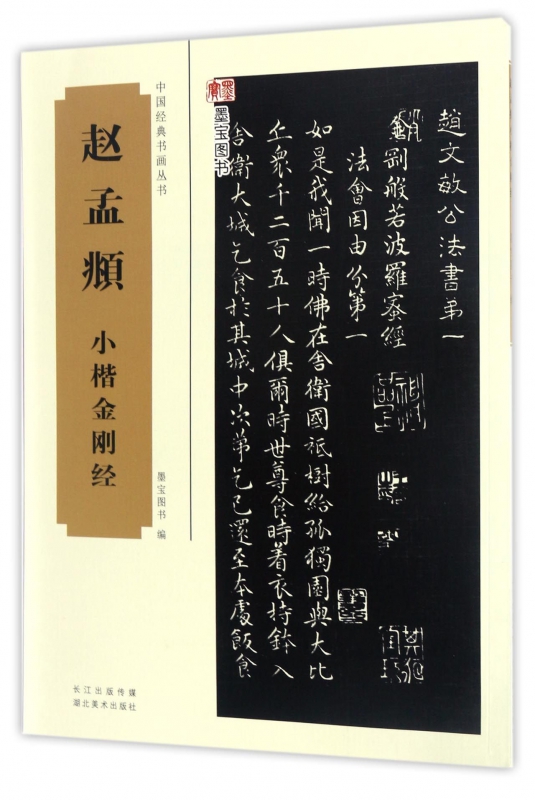 中国经典书画丛书
赵孟頫
小楷金刚经
墨宝图书 编
长江出版传媒
湖北美术出版社
墨宝图书
趙文敏公法書第一
金剛般若波羅蜜經
法會因由分第一
如是我聞一時佛在舍衛國祇樹給孤獨園與大比
丘衆千二百五十人俱爾時世尊食時着衣持鉢入
舍衛大城乞食於其城中次第乞已還至本處飯食